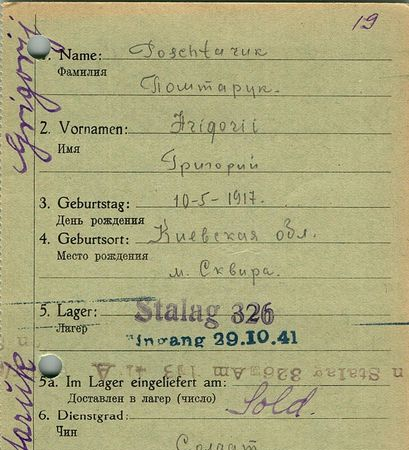 19
Grigorij
1. Name: Poschtaruk
Фамилия
Поштарук.
2. Vornamen: Hrigorii
Имя
Григорий
3. Geburtstag: 10-5-1917.
День рождения
4. Geburtsort: Киевская обл.
Место рождения
м. Сквира.
5. Lager: Stalag 326
Лагерь
Eingang 29.10.41
n Stalag 326 Am
5a. Im Lager eingeliefert am:
Доставлен в лагерь (число)
Sold.
6. Dienstgrad:
Чин
Солдат